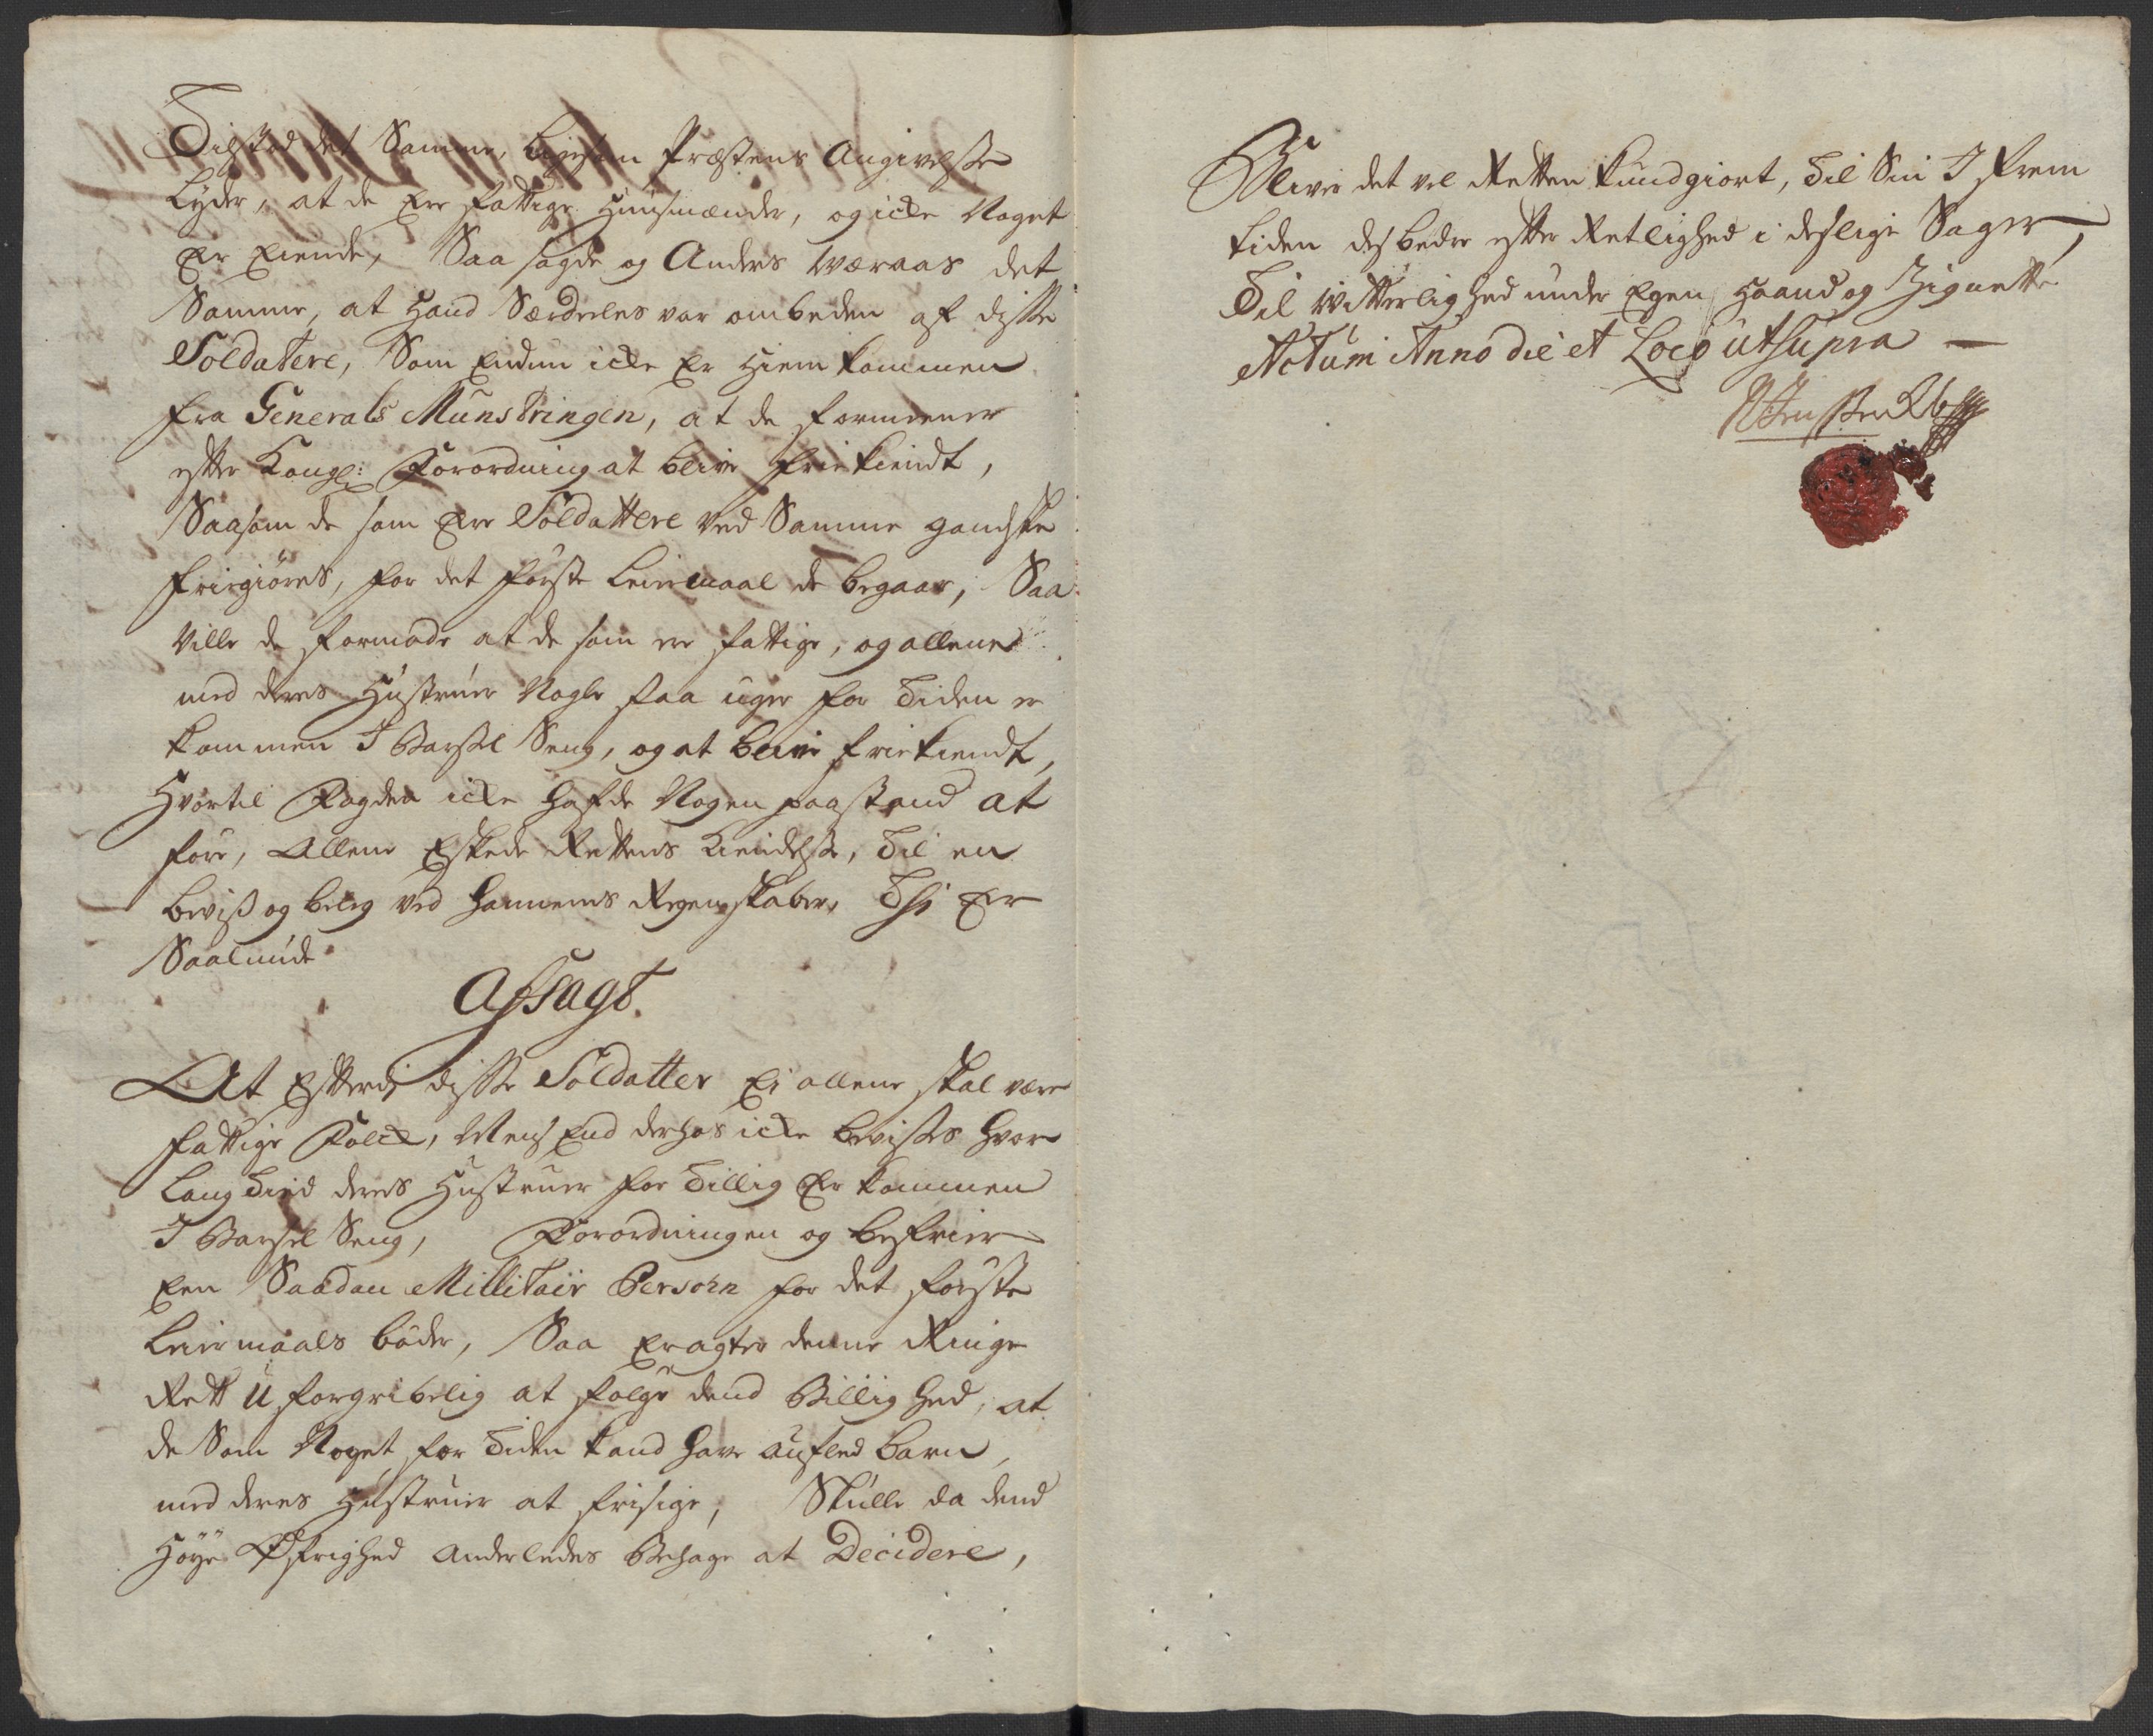 Tilstod det Samme, ligesom Præstens Angivelse
Lyder, at de Ere fattige Huusmænder, og icke Noget
Er Eiende, Saa sagde og Anders Wæraas det
Samme, at Hand Særdeeles var ombeden af disse
Soldatere, Som Endnu icke Er Hiemkommen
fra Generals Mùnstringen, at de formeener
efter Kongl: Forordning at blive friekiendt,
Saasom de som Ere Soldattere ved Samme gandske
friegiöres, for det förste Leiermaal de begaar, Saa
Ville de formode at de som ere fattige, og allene
med deres Hustruer Nogle faa uger for Tiden er
kommen I Barsel Seng, og at blive friekiendt,
Hvortil Fogden icke hafde Nogen paastand at
före, Allene Eskede Rettens Kiendelse, Til en
beviis og beleg ved hannems Regenskaber, Thi Er
Saaleunde
Afsagt.
At Efterdj disse Soldatter Ei allene skal være
fattige Folck, Mens End derhos icke bevises hvor
lang Tiid deres Hustruer for Tillig Er kommen
I Barsel Seng, Forordningen og befrier
Een Saadan Millitair Persohn for det förste
Leiermaals böder, Saa Eragter denne Ringe
Rett Uforgribelig at fölge dend Billighed, at
de Som Noget for Tiden kand have aufled Barn,
med deres Hustruer at frisige, Skulle da dend
Höye Öfrighed anderledes Behage at Decidere,
Blive det vel Retten kundgiort, Til Sin I frem
tiden des bedre efter Retlighed i deslige Sager,
Til Witterlighed under Egen Haand og Zignette
Actum Anno die et Loco utsupra —